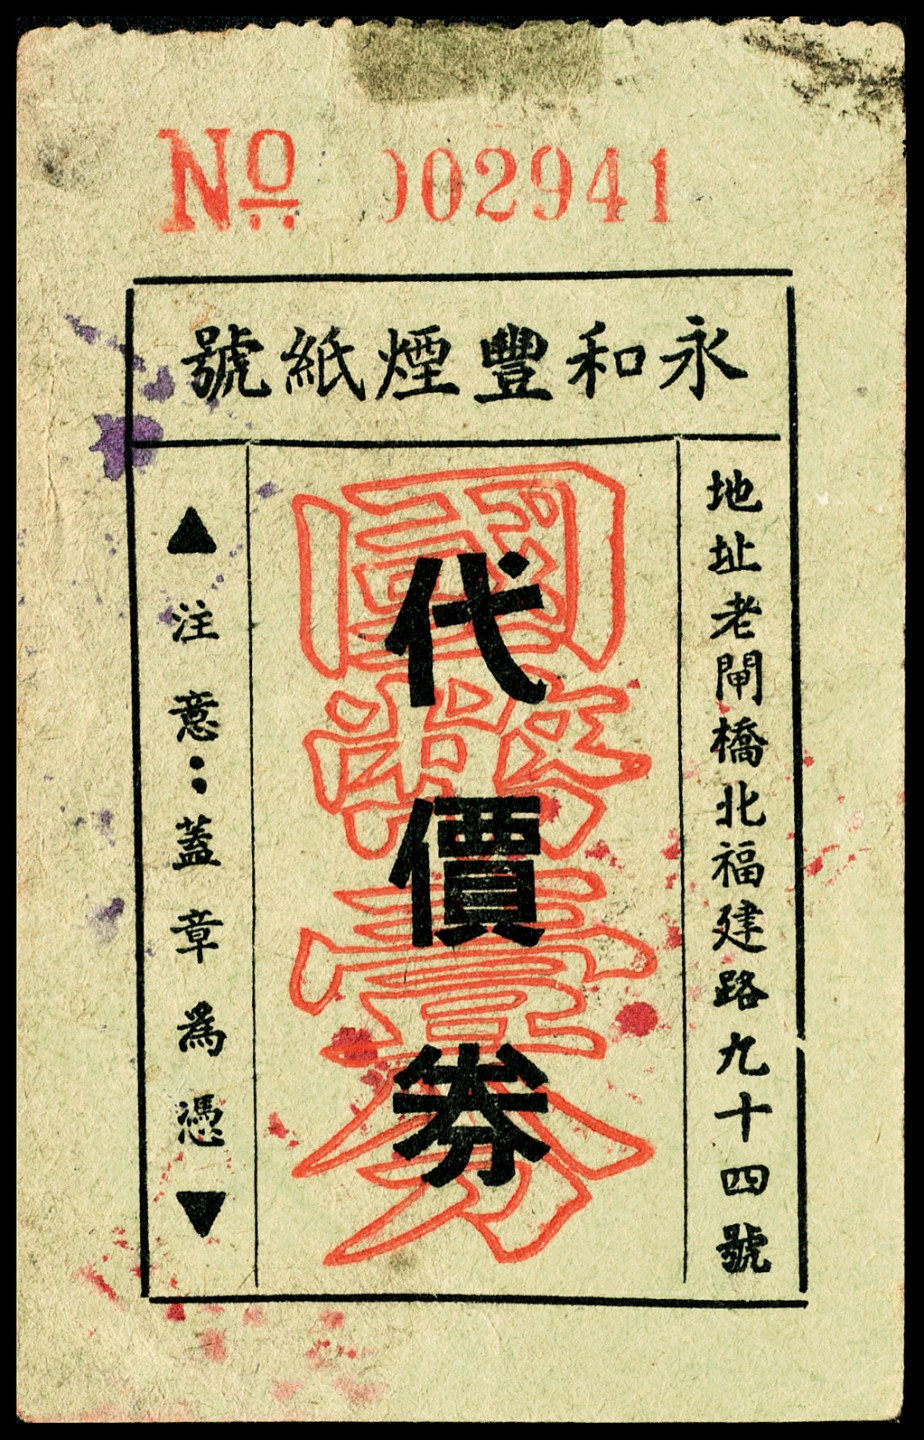 Nº 002941
永和豐煙紙號
地址老閘橋北福建路九十四號
國幣壹分
代價券
▲注意：蓋章爲憑▼